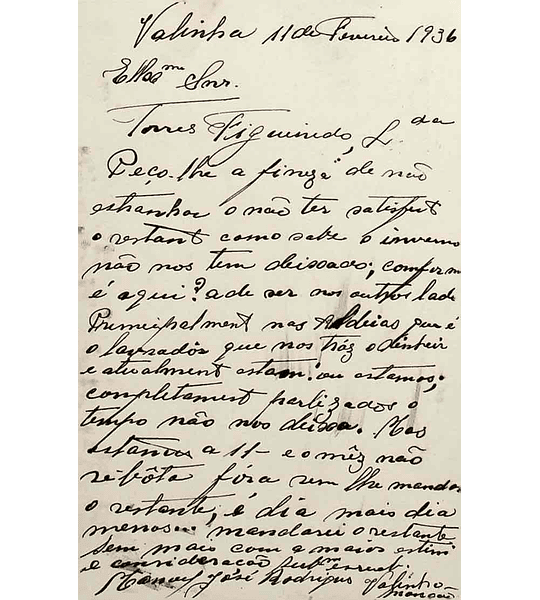 Valinha 11 de Fevereiro 1936
Exmº Snr.
Torres Figueiredo, L.da
Peço-lhe a fineza de não
estranhar o não ter satisfeit
o restant como sabe o inverno
não nos tem deissado; comform
é aqui? ade ser nos outros lado
Principalment nas Aldeias que é
o lavrador que nos tráz o dinheir
e atualment estam: ou estamos;
completament parlizados o
tempo não nos deixa. Mas
estamos a 11- e o mêz não
se bóta fóra sem lhe mandar
o restante, é dia mais dia
menos... mandarei o restante
sem mais com a maior estim
e consideração
Manoel José Rodrigues Valinha-
Monção